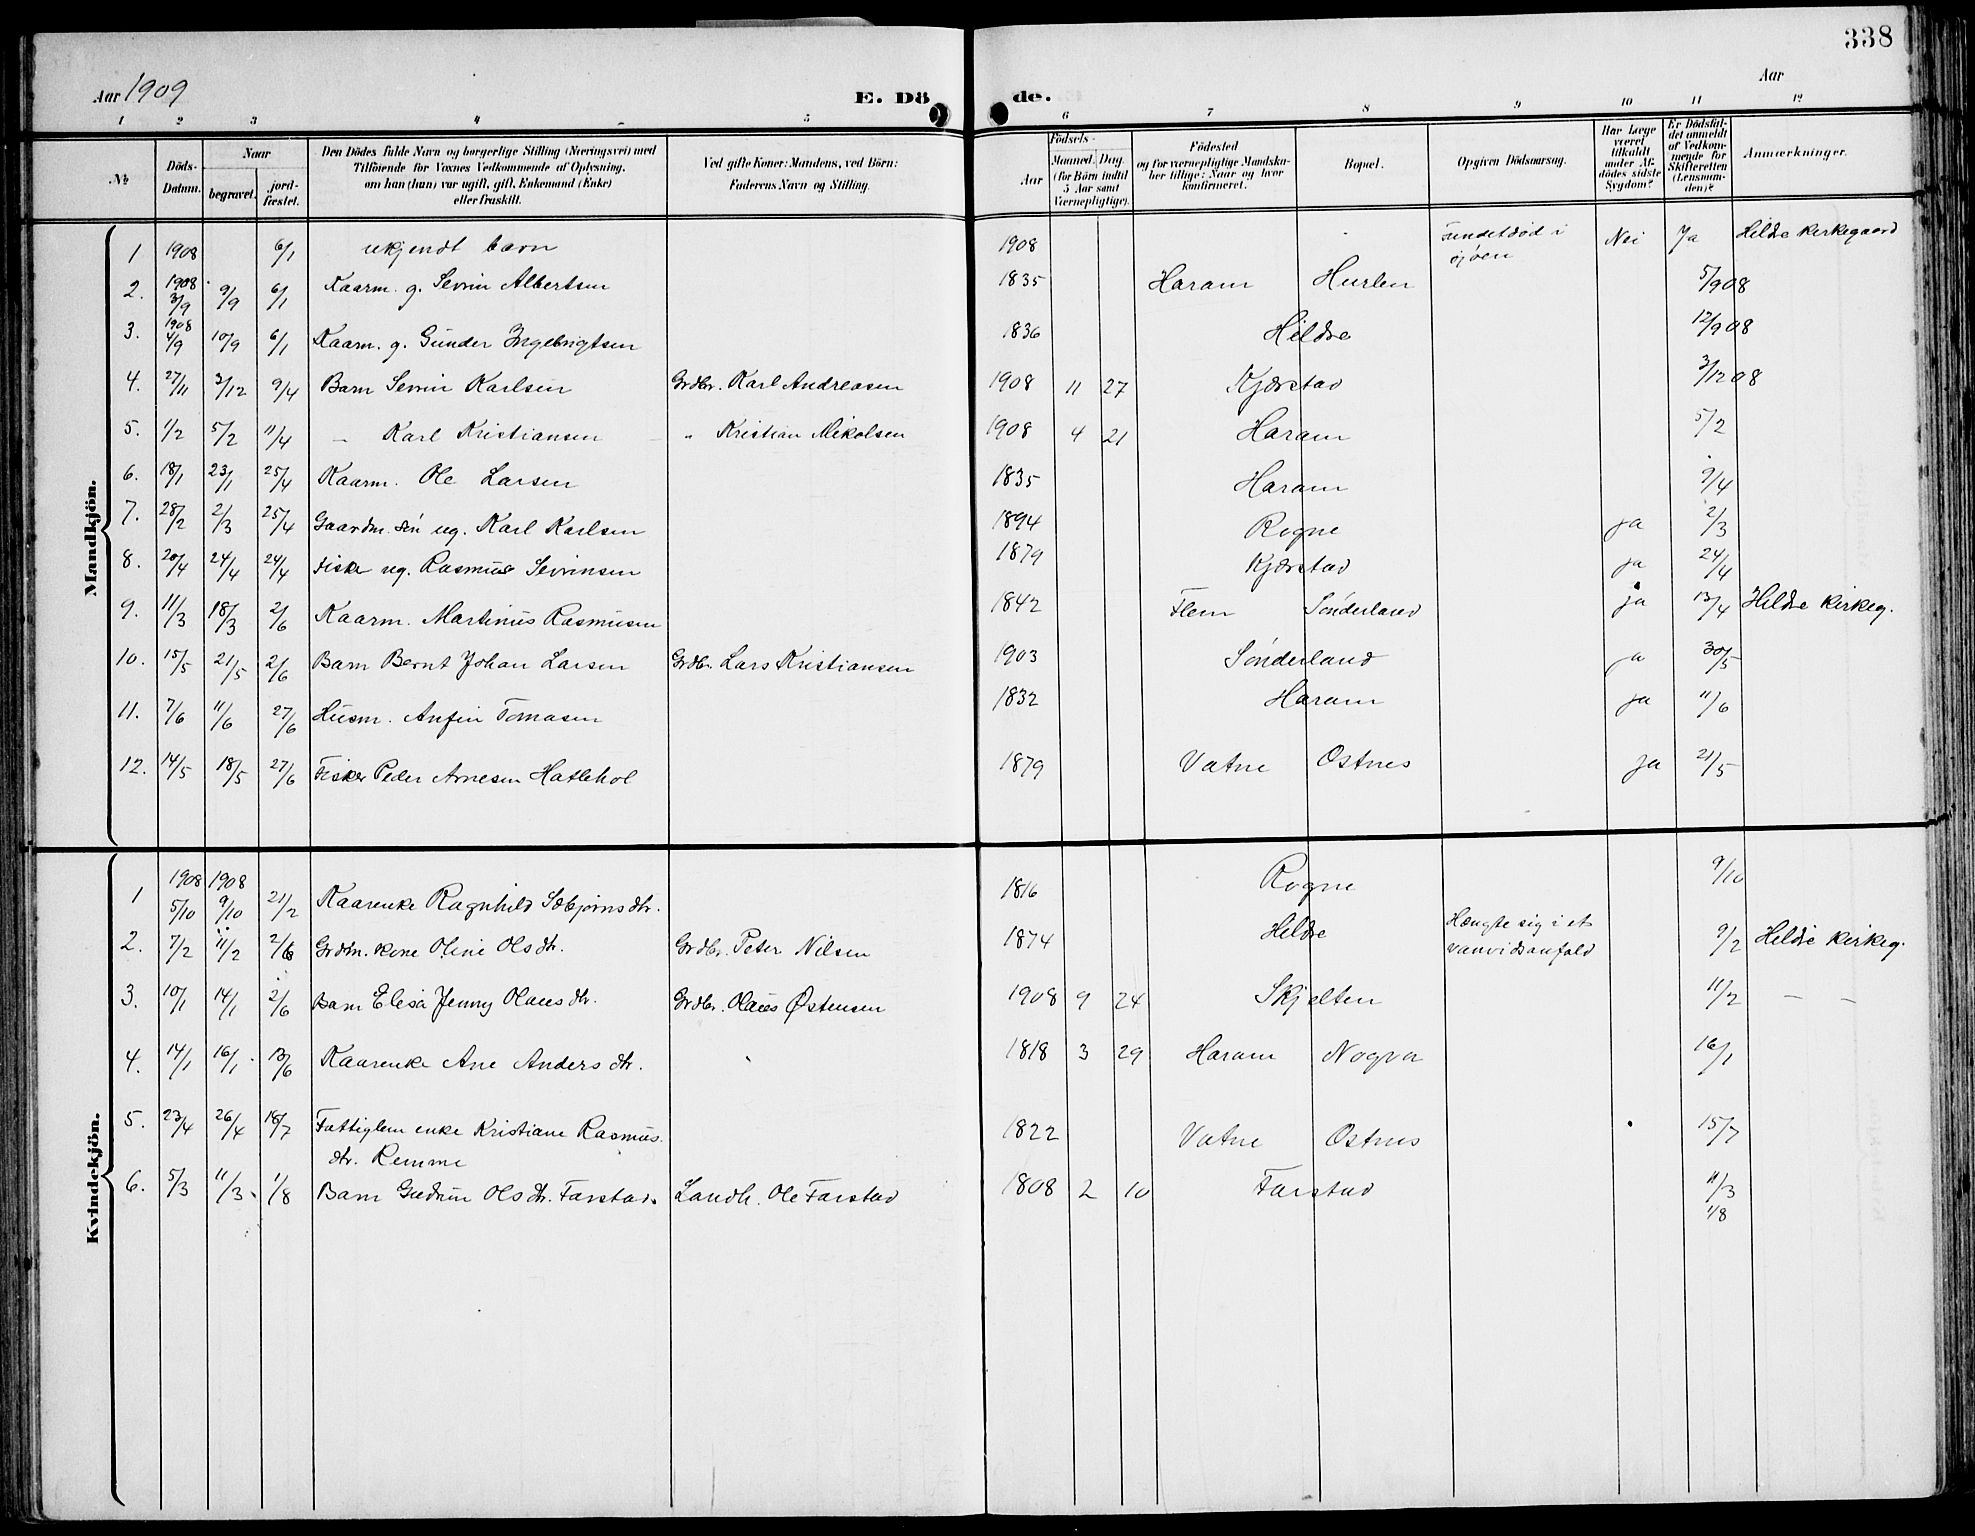 338
Aar 1909
E. Dö
de.
Aar
1 2 3 4 5 6 7 8 9 10 11 12
№
Döds-Datum.
Naar
begravet.
jord-fæstet.
Den Dödes fulde Navn og borgerlige Stilling (Næringsvei) med
Tilföiende for Voxnes Vedkommende af Oplysning,
om han (hun) var ugift, gift, Enkemand (Enke)
eller fraskilt.
Ved gifte Koner: Mandens, ved Börn:
Faderens Navn og Stilling.
Födsels-
Aar
Maaned. Dag.
(for Börn indtil
5 Aar samt
Værnepligtige).
Födested
og for værnepligtige Mandska-
ber tillige: Naar og hvor
konfirmeret.
Bopæl.
Opgiven Dödsaarsag.
Har Læge
været
tilkaldt
under Af-
dödes sidste
Sygdom?
Er Dödsfal-
det anmeldt
af Vedkom-
mende for
Skifteretten
(Lensman-
den)?
Anmærkninger.
Mandkjön.
1 1908 6/1 ukjendt barn 1908 Fundet död i sjöen Nei Ja Hildre kirkegaard
2. 1908 3/9 9/9 6/1 Kaarm. g. Sevrin Albertsen 1835 Haram Hurlen 5/9 08
3. 1908 4/9 10/9 6/1 Kaarm. g. Gunder Ingebrigtsen 1836 Hildre 12/9 08
4. 27/11 3/12 9/4 Barn Sevrin Karlsen Grdbr. Karl Andreasen 1908 11 27 Kjærstad 3/12 08
5. 1/2 5/2 11/4 — Karl Kristiansen — „ Kristian Nikolsen 1908 4 21 Haram 5/2
6. 18/1 23/1 25/4 Kaarm. Ole Larsen 1835 Haram 9/4
7. 28/2 2/3 25/4 Gaardm. sön ug. Karl Karlsen 1894 Rogne ja 2/3
8. 20/4 24/4 24/4 Fisker ug. Rasmus Sevrinsen 1879 Kjærstad ja 24/4
9. 11/3 18/3 2/6 Kaarm. Martinus Rasmusen 1842 Flem Sönderland ja 13/4 Hildre kirkeg.
10. 15/5 21/5 2/6 Barn Bernt Johan Larsen Grdbr. Lars Kristiansen 1903 Sönderland ja 30/5
11. 7/6 11/6 27/6 Husm. Anfin Tomasen 1832 Haram ja 11/6
12. 14/5 18/5 27/6 Fisker Peder Arnesen Hatlehol 1879 Vatne Ostnes ja 21/5
Kvindekjön.
1 1908 5/10 1908 9/10 21/2 Kaarenke Ragnhild Sæbjörnsdtr. 1816 Rogne 9/10
2. 7/2 11/2 2/6 Grdm. kone Oline Olsdtr. Grdbr. Peter Nilsen 1874 Hildre Hængte sig i et vanvidsanfald 9/2 Hildre kirkeg.
3. 10/1 14/1 2/6 Barn Elisa Jenny Olausdtr. Grdbr. Olaus Østensen 1908 9 24 Skjelten 11/2 — —
4. 14/1 16/1 13/6 Kaarenke Ane Andersdtr. 1818 3 29 Haram Nogva 16/1
5. 23/4 26/4 18/7 Fattiglem enke Kristiane Rasmus-
dtr. Remme 1822 Vatne Ostnes 15/7
6. 5/3 11/3 1/8 Barn Gudrun Olsdtr. Farstad Landh. Ole Farstad 1808 2 10 Farstad 11/3
1/8